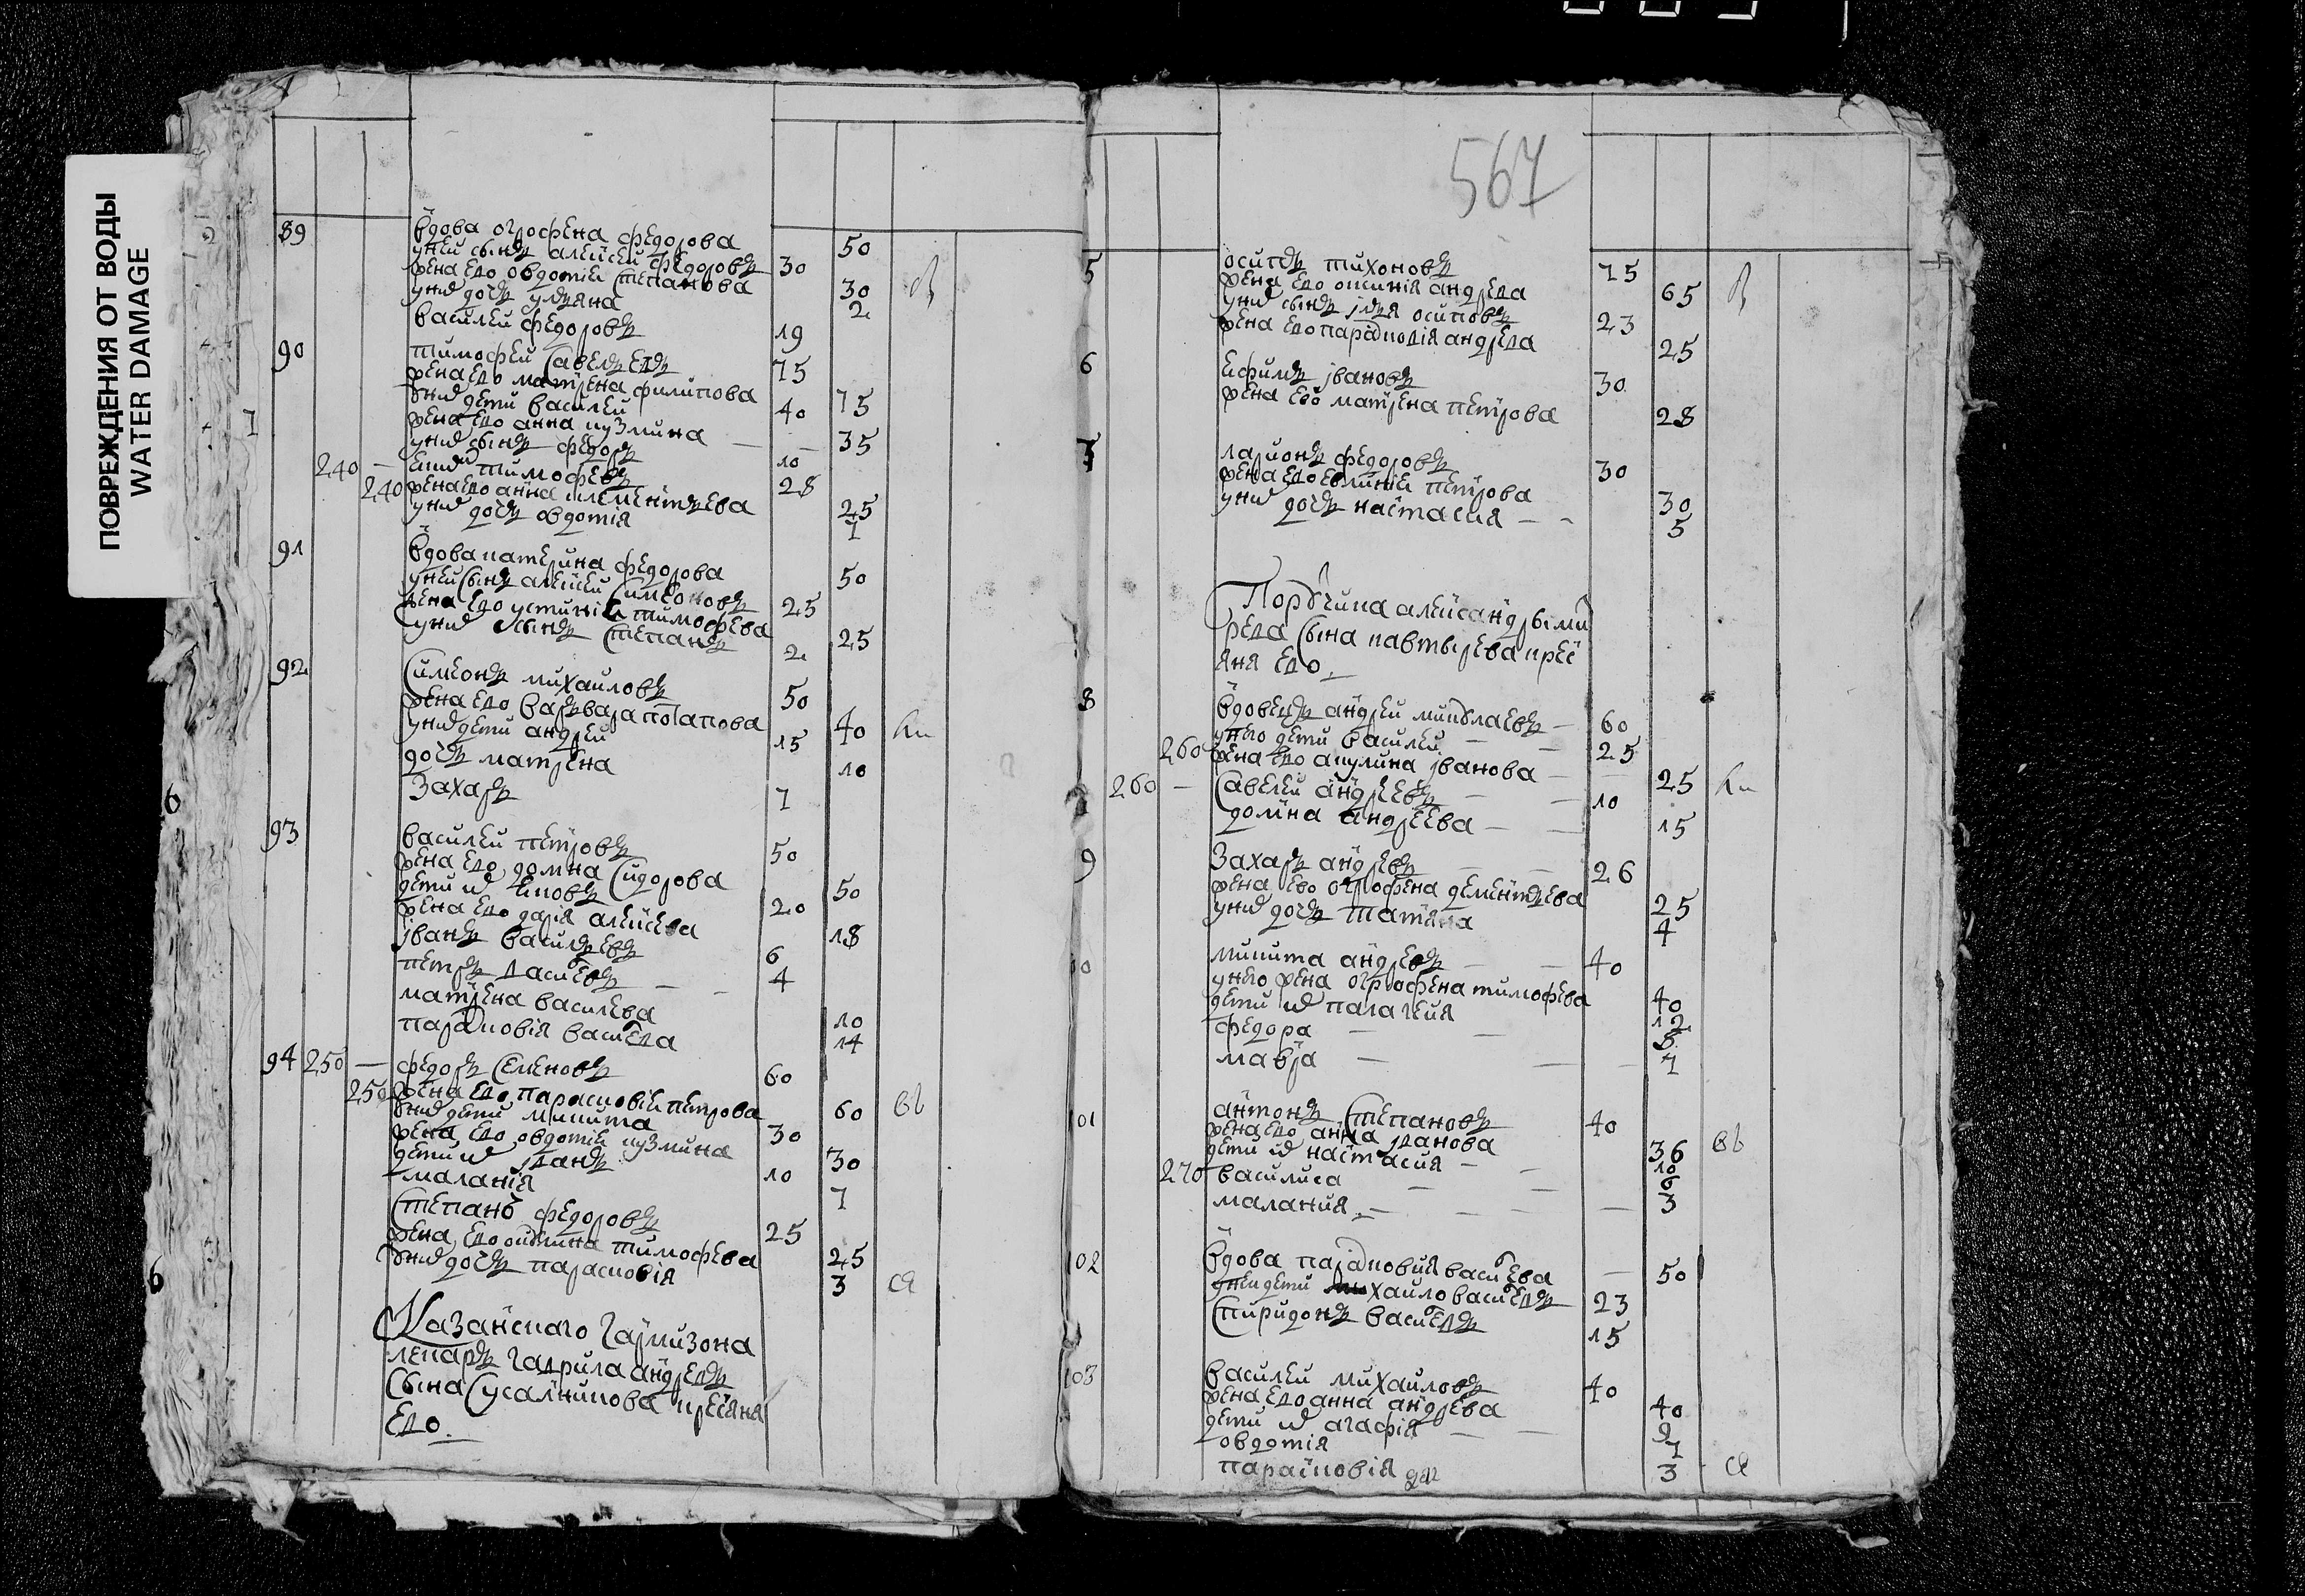 ПОВРЕЖДЕНИЯ ОТ ВОДЫ
WATER DAMAGE
89 вдова огрофена федорова 50
унеи сынъ алексеи федоровъ 30
жена ево овдотия степанова 30
униⷯ дочь ульяна 2
василеи федоровъ 19
90 тимофеи савельевъ 75
жена ево матрена филипова 75
униⷯ дети василеи 40
жена ево анна кузмина 35
униⷯ сынъ федоръ 10
240 тимофеевъ 28
240 жена ево анна клементьева 25
униⷯ дочь овдотия 1
91 вдова катерина федорова 50
унеи сынъ алексеи симоновъ 25
жена ево устиния тимофеева 25
униⷯ сынъ степанъ 2
92 симеонъ михаиловъ 50
жена ево варьвара потапова 40
униⷯ дети андреи 15
дочь матрена 10
захаръ 7
93 василеи петровъ 50
жена ево домна сидорова 50
дети иⷯ 20
жена ево дарія алексева 18
іванъ васильевъ 6
петръ васиⷧевъ 4
матрена василева 10
парасковія васиⷧева 14
94 250 федоръ семеновъ 60
250 жена ево парасковия петрова 60
униⷯ дети микита 30
жена ево овдотия кузмина 30
дети иⷯ іванъ 10
маланія 7
степанъ федоровъ 25
жена ево тимофеева 25
униⷯ дочь парасковія 3
Казанского гарнизона
лекаръ гаврила андреевъ
сына сусалникова кресьяня
ево
567
5 осипъ тихоновъ 75
жена ево андреева 65
униⷯ сынъ илья осиповъ 23
жена ево парасковія андреева 25
6 ефимъ івановъ 30
жена ево матрена петрова 28
7 ларионъ федоровъ 30
жена ево петрова 30
униⷯ дочь настасия 5
Порутчика александры
сына кресь
яня ево
8 вдовецъ андреи миколаевъ 60
унево дети василеи 25
260 жена ево акулина іванова 25
260 савелеи андреевъ 10
домна андреева 15
9 захаръ андреевъ 26
жена ево огрофена дементьева 25
униⷯ дочь татьяна 4
10 микита андреевъ 40
унево жена огрофена тимофеева 40
дети иⷯ палагея 12
федора 8
мавра 7
101 антонъ степановъ 40
жена ево анна іванова 36
дети иⷯ настасия 10
270 василиса 6
малания 3
102 вдова парасковия васиⷧева 50
унеи дети михаило васиⷧевъ 23
спиридонъ васиⷧевъ 15
103 василеи михаиловъ 40
жена ево анна андреева 40
дети иⷯ агафія 9
овдотия 7
парасковія 3